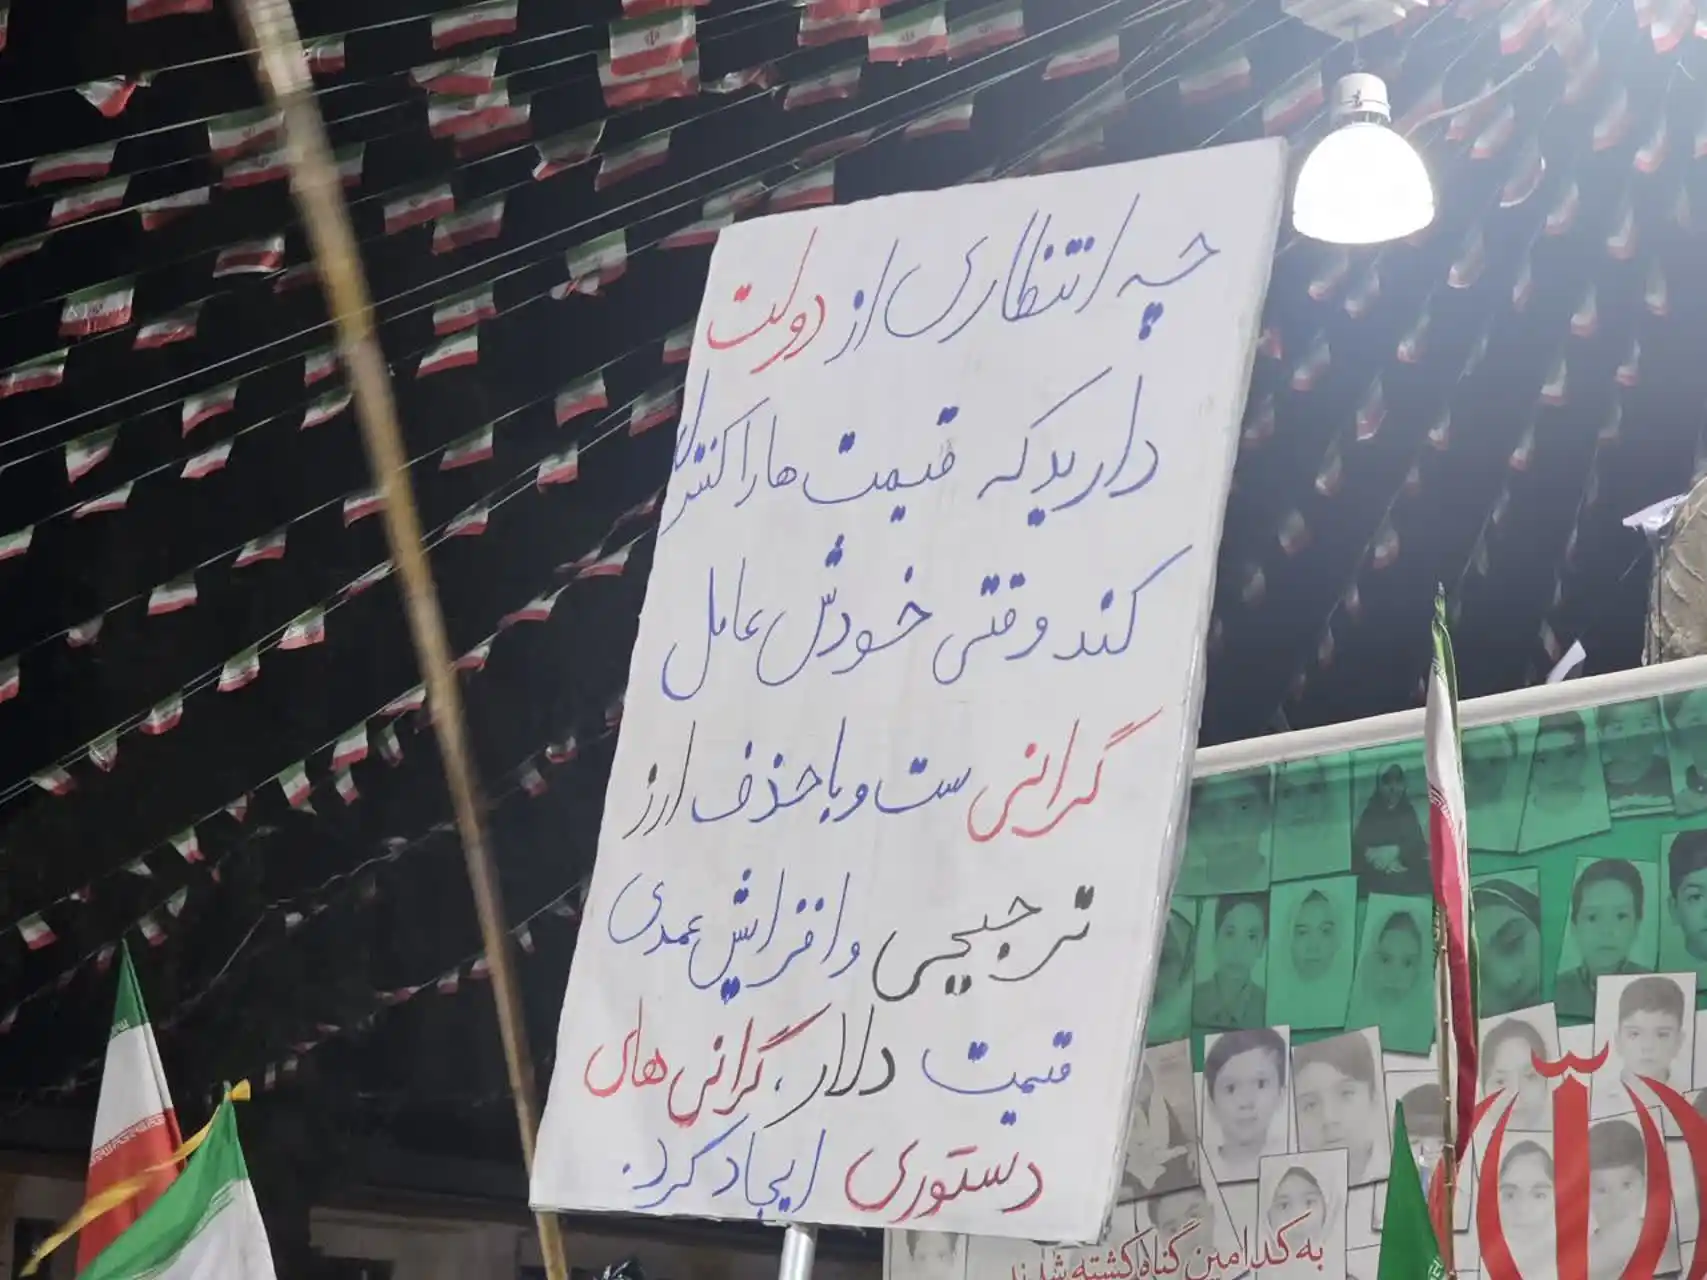 چه انتظاری از دولت
دارید که قیمت ها را کنترل
کند وقتی خودش عامل
گرانی ست و با حذف ارز
ترجیحی و افزایش عمدی
قیمت دلار، گرانی های
دستوری ایجاد کرد.
به کدامین گناه کشته شدند